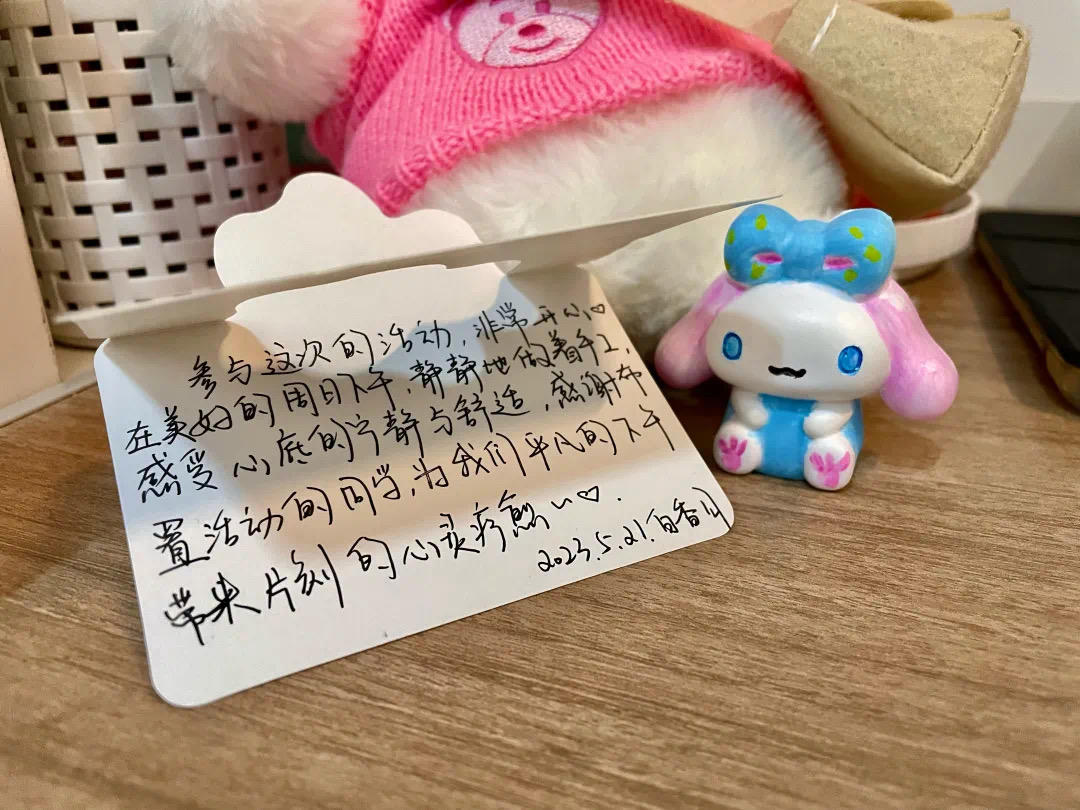 参与这次的活动,非常开心♡
在美好的周日下午,静静地做着手工,
感受心底的宁静与舒适,感谢布
置活动的同学,为我们平凡的下午
带来片刻的心灵疗愈~♡.
2023.5.21.白香